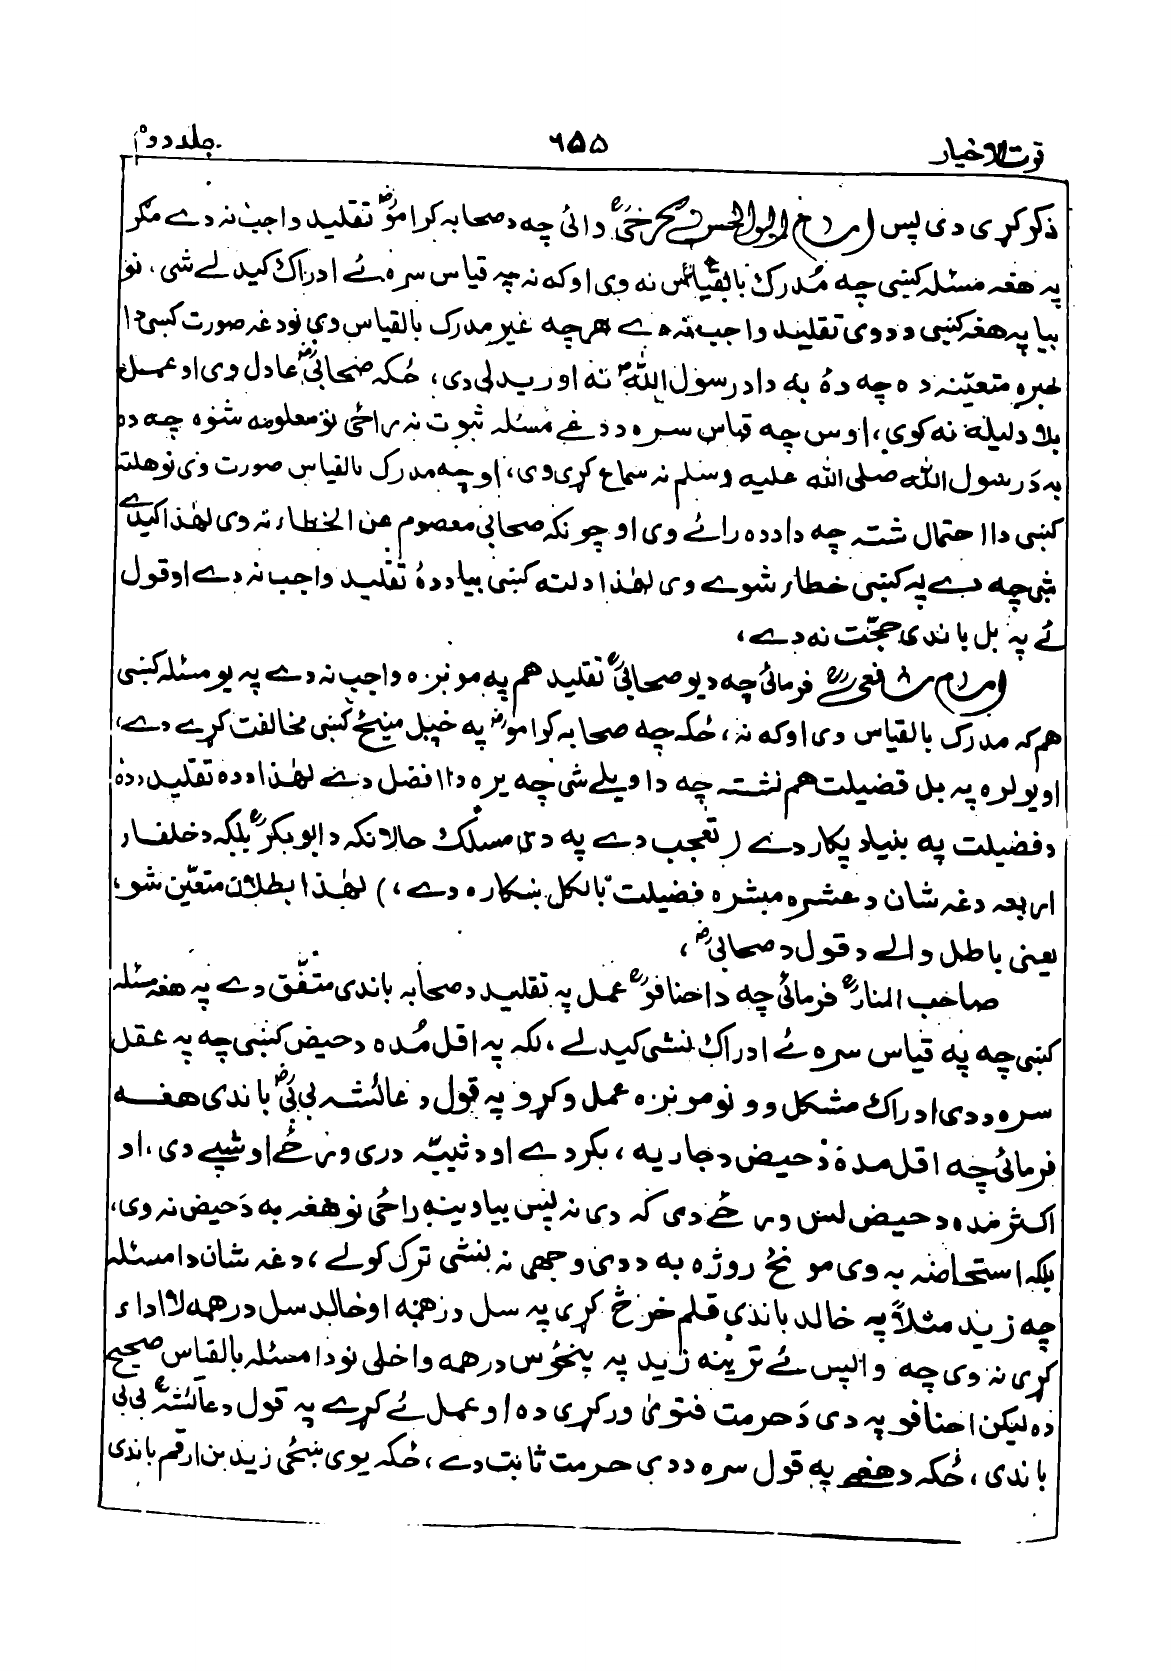 قوت الاخیار ۶۵۵ جلد دوم
ذکر کړی دی پس امام ابو الحسن کرخیؒ دائی چه د صحابه کرامو رض تقلید واجب نه دے مګر
په هغه مسئله کښی چه مُدرک بالقیاس نه وی او که نه چه قیاس سره ئے ادراک کیدلے شی، نو
بیا په هغه کښی د دوی تقلید واجب نه دے هر چه غیر مدرک بالقیاس دی نو دغه صورت کښی دا
خبره متعیّنه ده چه دهٔ به دا د رسول اللهؐ نه اوریدلی دی، ځکه صحابیؓ عادل وی او عمل
بلا دلیله نه کوی، اوس چه قیاس سره د دغے مسئله ثبوت نه راځی نو معلومه شوه چه ده
به دَ رسول الله صلی الله علیه وسلم نه سماع کړی وی، او چه مدرک بالقیاس صورت وی نو هلته
کښی دا احتمال شته چه دا دده رائے وی او چونکه صحابی معصوم عن الخطاء نه دی لهٰذا کیدے
شی چه دے په کښی خطاء شوے وی لهٰذا دلته کښی بیا ددهٔ تقلید واجب نه دے او قول
ئے په بل باندی حجّت نه دے،
امام شافعیؒ فرمائی چه د یو صحابیؓ تقلید هم په مونږه واجب نه دے په یو مسئله کښی
هم که مدرک بالقیاس دی او که نه، ځکه چه صحابه کرامو رض په خپل مینځ کښی مخالفت کړے دے،
او یو لره په بل فضیلت هم نشته چه دا ویلے شی چه یره دا افضل دے لهٰذا دده تقلید ددهٔ
د فضیلت په بنیاد پکار دے (تعجب دے په دی مسلک حالانکه د ابوبکرؓ بلکه د خلفاء
اربعه دغه شان د عشره مبشره فضیلت بالکل ښکاره دے،) لهٰذا بطلان متعیّن شو،
یعنی باطل والے د قول د صحابیؓ،
صاحب المنارؒ فرمائی چه د احنافوؒ عمل په تقلید د صحابه باندی متفّق دے په هغه مسئله
کښی چه په قیاس سره ئے ادراک نشی کیدلے، لکه په اقل مُده د حیض کښی چه په عقل
سره ددی ادراک مشکل وو نو مونږه عمل وکړو په قول د عائشه بی بیؓ باندی هغه
فرمائی چه اقل مدهٔ دَ حیض د جاریه، بکر دے او د ثیبّه دری ورځے او شپے دی، او
اکثر مُده د حیض لس ورځے دی که دی نه پس بیا دینه راځی نو هغه به دَ حیض نه وی،
بلکه استحاضه به وی مونځ روژه به ددی وجهی نه نشی ترک کولے، دغه شان دا مسئله
چه زید مثلاً په خالد باندی قلم خرڅ کړی په سل درهمه او خالد سل درهمه لا اداء
کړی نه وی چه واپس ئے ترینه زید په پنځوس درهمه واخلی نو دا مسئله بالقیاس صحیح
ده لیکن احنافو په دی دَ حرمت فتویٰ ورکړی ده او عمل ئے کړے په قول د عائشهؓ بی بی
باندی، ځکه د هغے په قول سره ددی حرمت ثابت دے، ځکه یوی ښځی زید بن ارقم باندی